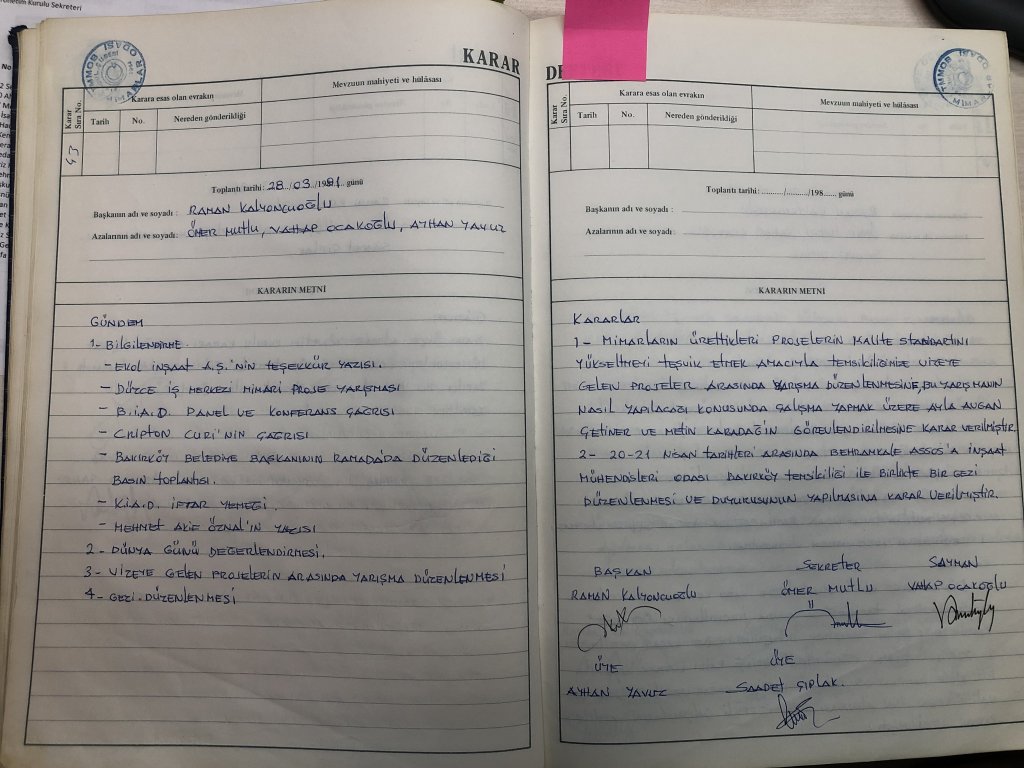 Yönetim Kurulu Sekreteri
KARAR
Karar Sıra No.
Karara esas olan evrakın
Mevzuun mahiyeti ve hülâsası
Tarih
No.
Nereden gönderildiği
43
Toplantı tarihi: 28../03../1991.. günü
Başkanın adı ve soyadı : RAMAN KALYONCUOĞLU
Azalarının adı ve soyadı: ÖMER MUTLU, VAHAP OCAKOĞLU, AYHAN YAVUZ
KARARIN METNİ
GÜNDEM
1- BİLGİLENDİRME
- EKOL İNŞAAT A.Ş.'NİN TEŞEKKÜR YAZISI.
- DÜZCE İŞ MERKEZİ MİMARİ PROJE YARIŞMASI
- B.İ.A.D. PANEL VE KONFERANS ÇAĞRISI
- CRIPTON CURI'NİN ÇAĞRISI
- BAKIRKÖY BELEDİYE BAŞKANININ RAMADA'DA DÜZENLEDİĞİ
BASIN TOPLANTISI.
- K.İ.A.D. İFTAR YEMEĞİ.
- MEHMET AKİF ÖZNAL'IN YAZISI
2- DÜNYA GÜNÜ DEĞERLENDİRMESİ.
3- VİZEYE GELEN PROJELERİN ARASINDA YARIŞMA DÜZENLENMESİ
4- GEZİ DÜZENLENMESİ
MİMARLAR ODASI
Karar Sıra No.
Karara esas olan evrakın
Mevzuun mahiyeti ve hülâsası
Tarih
No.
Nereden gönderildiği
Toplantı tarihi: ........../........../198...... günü
Başkanın adı ve soyadı :
Azalarının adı ve soyadı:
KARARIN METNİ
KARARLAR
1- MİMARLARIN ÜRETTİKLERİ PROJELERİN KALİTE STANDARTINI
YÜKSELTMEYİ TEŞVİK ETMEK AMACIYLA TEMSİLCİLİĞİMİZE VİZEYE
GELEN PROJELER ARASINDA YARIŞMA DÜZENLENMESİNE, BU YARIŞMANIN
NASIL YAPILACAĞI KONUSUNDA ÇALIŞMA YAPMAK ÜZERE AYLA AVGAN
ÇETİNER VE METİN KARADAĞ'IN GÖREVLENDİRİLMESİNE KARAR VERİLMİŞTİR.
2- 20-21 NİSAN TARİHLERİ ARASINDA BEHRAMKALE ASSOS'A İNŞAAT
MÜHENDİSLERİ ODASI BAKIRKÖY TEMSİLCİLİĞİ İLE BİRLİKTE BİR GEZİ
DÜZENLENMESİ VE DUYURUSUNUN YAPILMASINA KARAR VERİLMİŞTİR.
BAŞKAN SEKRETER SAYMAN
RAMAN KALYONCUOĞLU ÖMER MUTLU VAHAP OCAKOĞLU
ÜYE ÜYE
AYHAN YAVUZ SAADET ÇIPLAK.